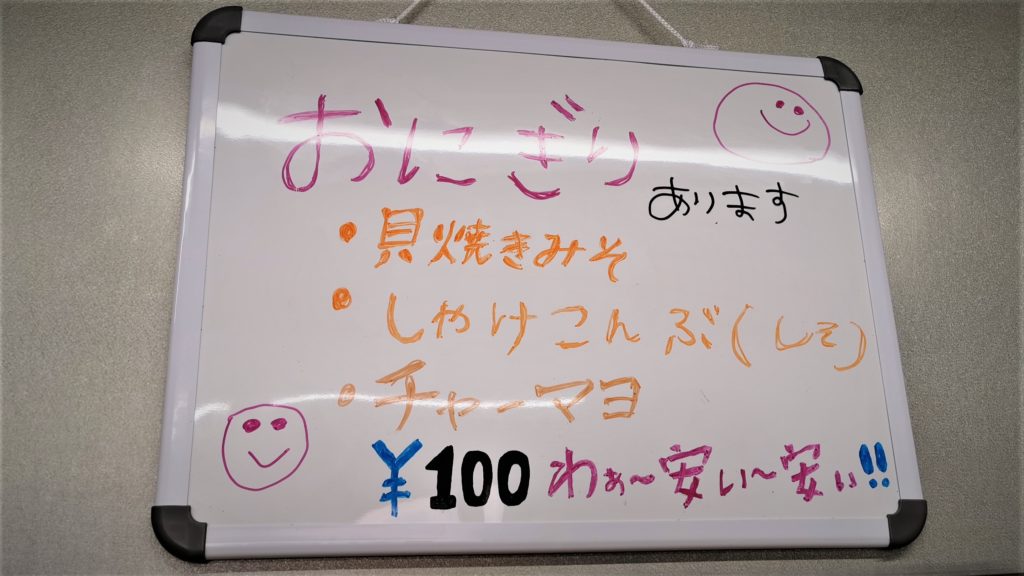 おにぎり
あります
・貝焼きみそ
・しゃけこんぶ(しそ)
・チャーマヨ
¥100 わぁ〜安い〜安い!!